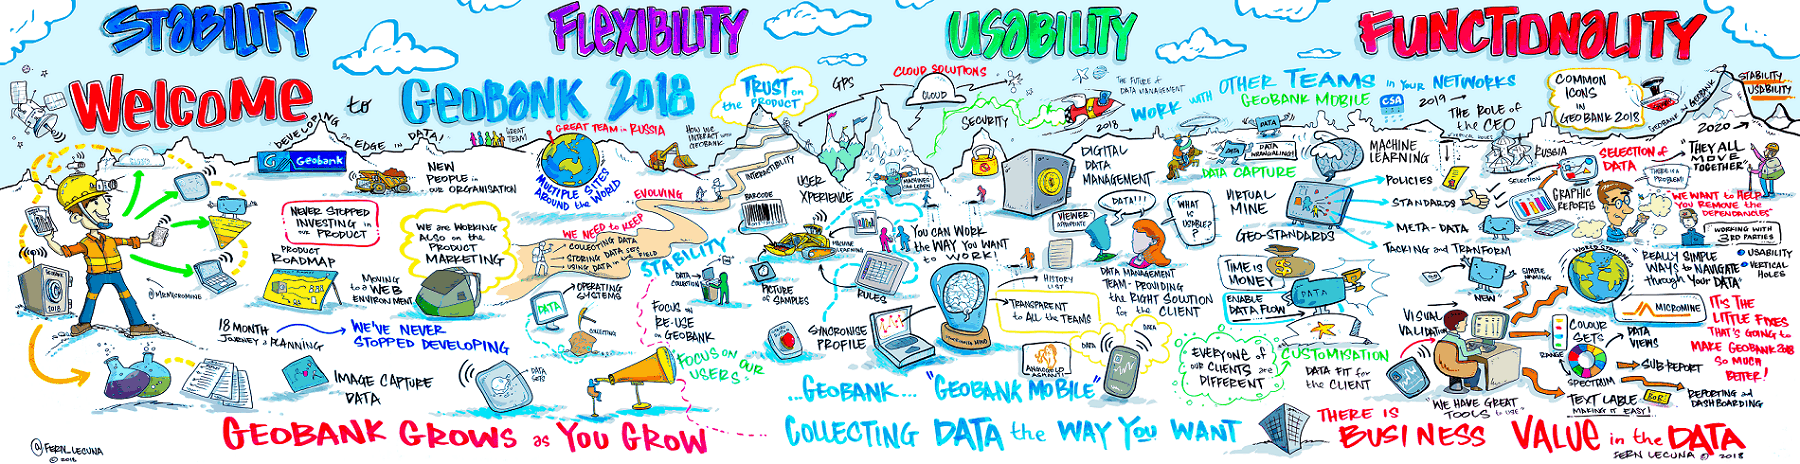 STABILITY
FLEXIBILITY
USABILITY
FUNCTIONALITY
WELCOME to GEOBANK 2018
DEVELOPING an EDGE in DATA!
Geobank
NEW
PEOPLE in
OUR ORGANISATION
NEVER STOPPED
INVESTING in
OUR PRODUCT
PRODUCT
ROADMAP
WE ARE
WORKING
ALSO on the
PRODUCT
MARKETING
MOVING
to a WEB
ENVIRONMENT
@MICROMINE
18 MONTH
JOURNEY & PLANNING
WE'VE NEVER
STOPPED DEVELOPING
IMAGE CAPTURE
DATA
GEOBANK GROWS as YOU GROW
@FERN_LECUNA
© 2018
GREAT
TEAM!
GREAT TEAM in RUSSIA
MULTIPLE SITES
AROUND the WORLD
HOW WE
INTERACT with
GEOBANK
EVOLVING
INTERACTIBILITY
WE NEED to KEEP
COLLECTING DATA
STORING DATA SETS
USING DATA in the FIELD
STABILITY
DATA
OPERATING
SYSTEMS
COLLECTING
DATA
SETS
DATA
COLLECTION
FOCUS on
RE-USE
in GEOBANK
FOCUS on OUR
USERS
TRUST on
the PRODUCT
GPS
CLOUD SOLUTIONS
CLOUD
SECURITY
USER
XPERIENCE
BARCODE
MACHINE
LEARNING
PICTURE
OF SAMPLES
RULES
SINCRONISE
PROFILE
YOU CAN WORK
the WAY YOU WANT
to WORK!
THE FUTURE of
DATA MANAGEMENT
2018
DIGITAL
DATA
MANAGEMENT
VIEWER
DATA!!!
WHAT
IS
USABLE??
HISTORY
LIST
DATA MANAGEMENT
TEAM - PROVIDING
the RIGHT SOLUTION
for the CLIENT
TRANSPARENT
to ALL the TEAMS
DATA
DATA
...GEOBANK... "GEOBANK MOBILE"
COLLECTING DATA the WAY YOU WANT
WORK WITH OTHER TEAMS in YOUR NETWORKS
GEOBANK MOBILE
CSA
2019
DATA
DATA
DATA WRANGLING!
DATA CAPTURE
VIRTUAL
MINE
GEO-STANDARDS
TIME IS
MONEY
ENABLE
DATA FLOW
DATA
EVERYONE of
OUR CLIENTS are
DIFFERENT
CUSTOMISATION
DATA FIT for
the CLIENT
MACHINE
LEARNING
POLICIES
STANDARDS
META-DATA
TACKING and TRANFORM
THE ROLE of
the CEO
RUSSIA
SELECTION
GRAPHIC
REPORTS
SELECTION of
DATA
THERE IS a
PROBLEM!
COMMON
ICONS
in
GEOBANK 2018
GEOBANK
GEOBANK
STABILITY
USABILITY
2020
"THEY ALL
MOVE
TOGETHER"
WE WANT to HELP
YOU REMOVE the
DEPENDANCIES"
WORKING with
3RD PARTIES
USABILITY
VERTICAL
HOLES
NEW
SIMPLE
NAMING
REALLY SIMPLE
WAYS to NAVIGATE
through YOUR DATA
MICROMINE
VISUAL
VALIDATION
COLOUR
SETS
RANGE
SPECTRUM
DATA
VIEWS
SUB-REPORT
REPORTING and
DASHBOARDING
TEXT LABLE
MAKING IT EASY!
"WE HAVE GREAT
TOOLS to USE"
IT'S THE
LITTLE FIXES
THAT'S GOING to
MAKE GEOBANK 2018
SO MUCH
BETTER!
THERE IS
BUSINESS VALUE in the DATA
FERN LECUNA © 2018